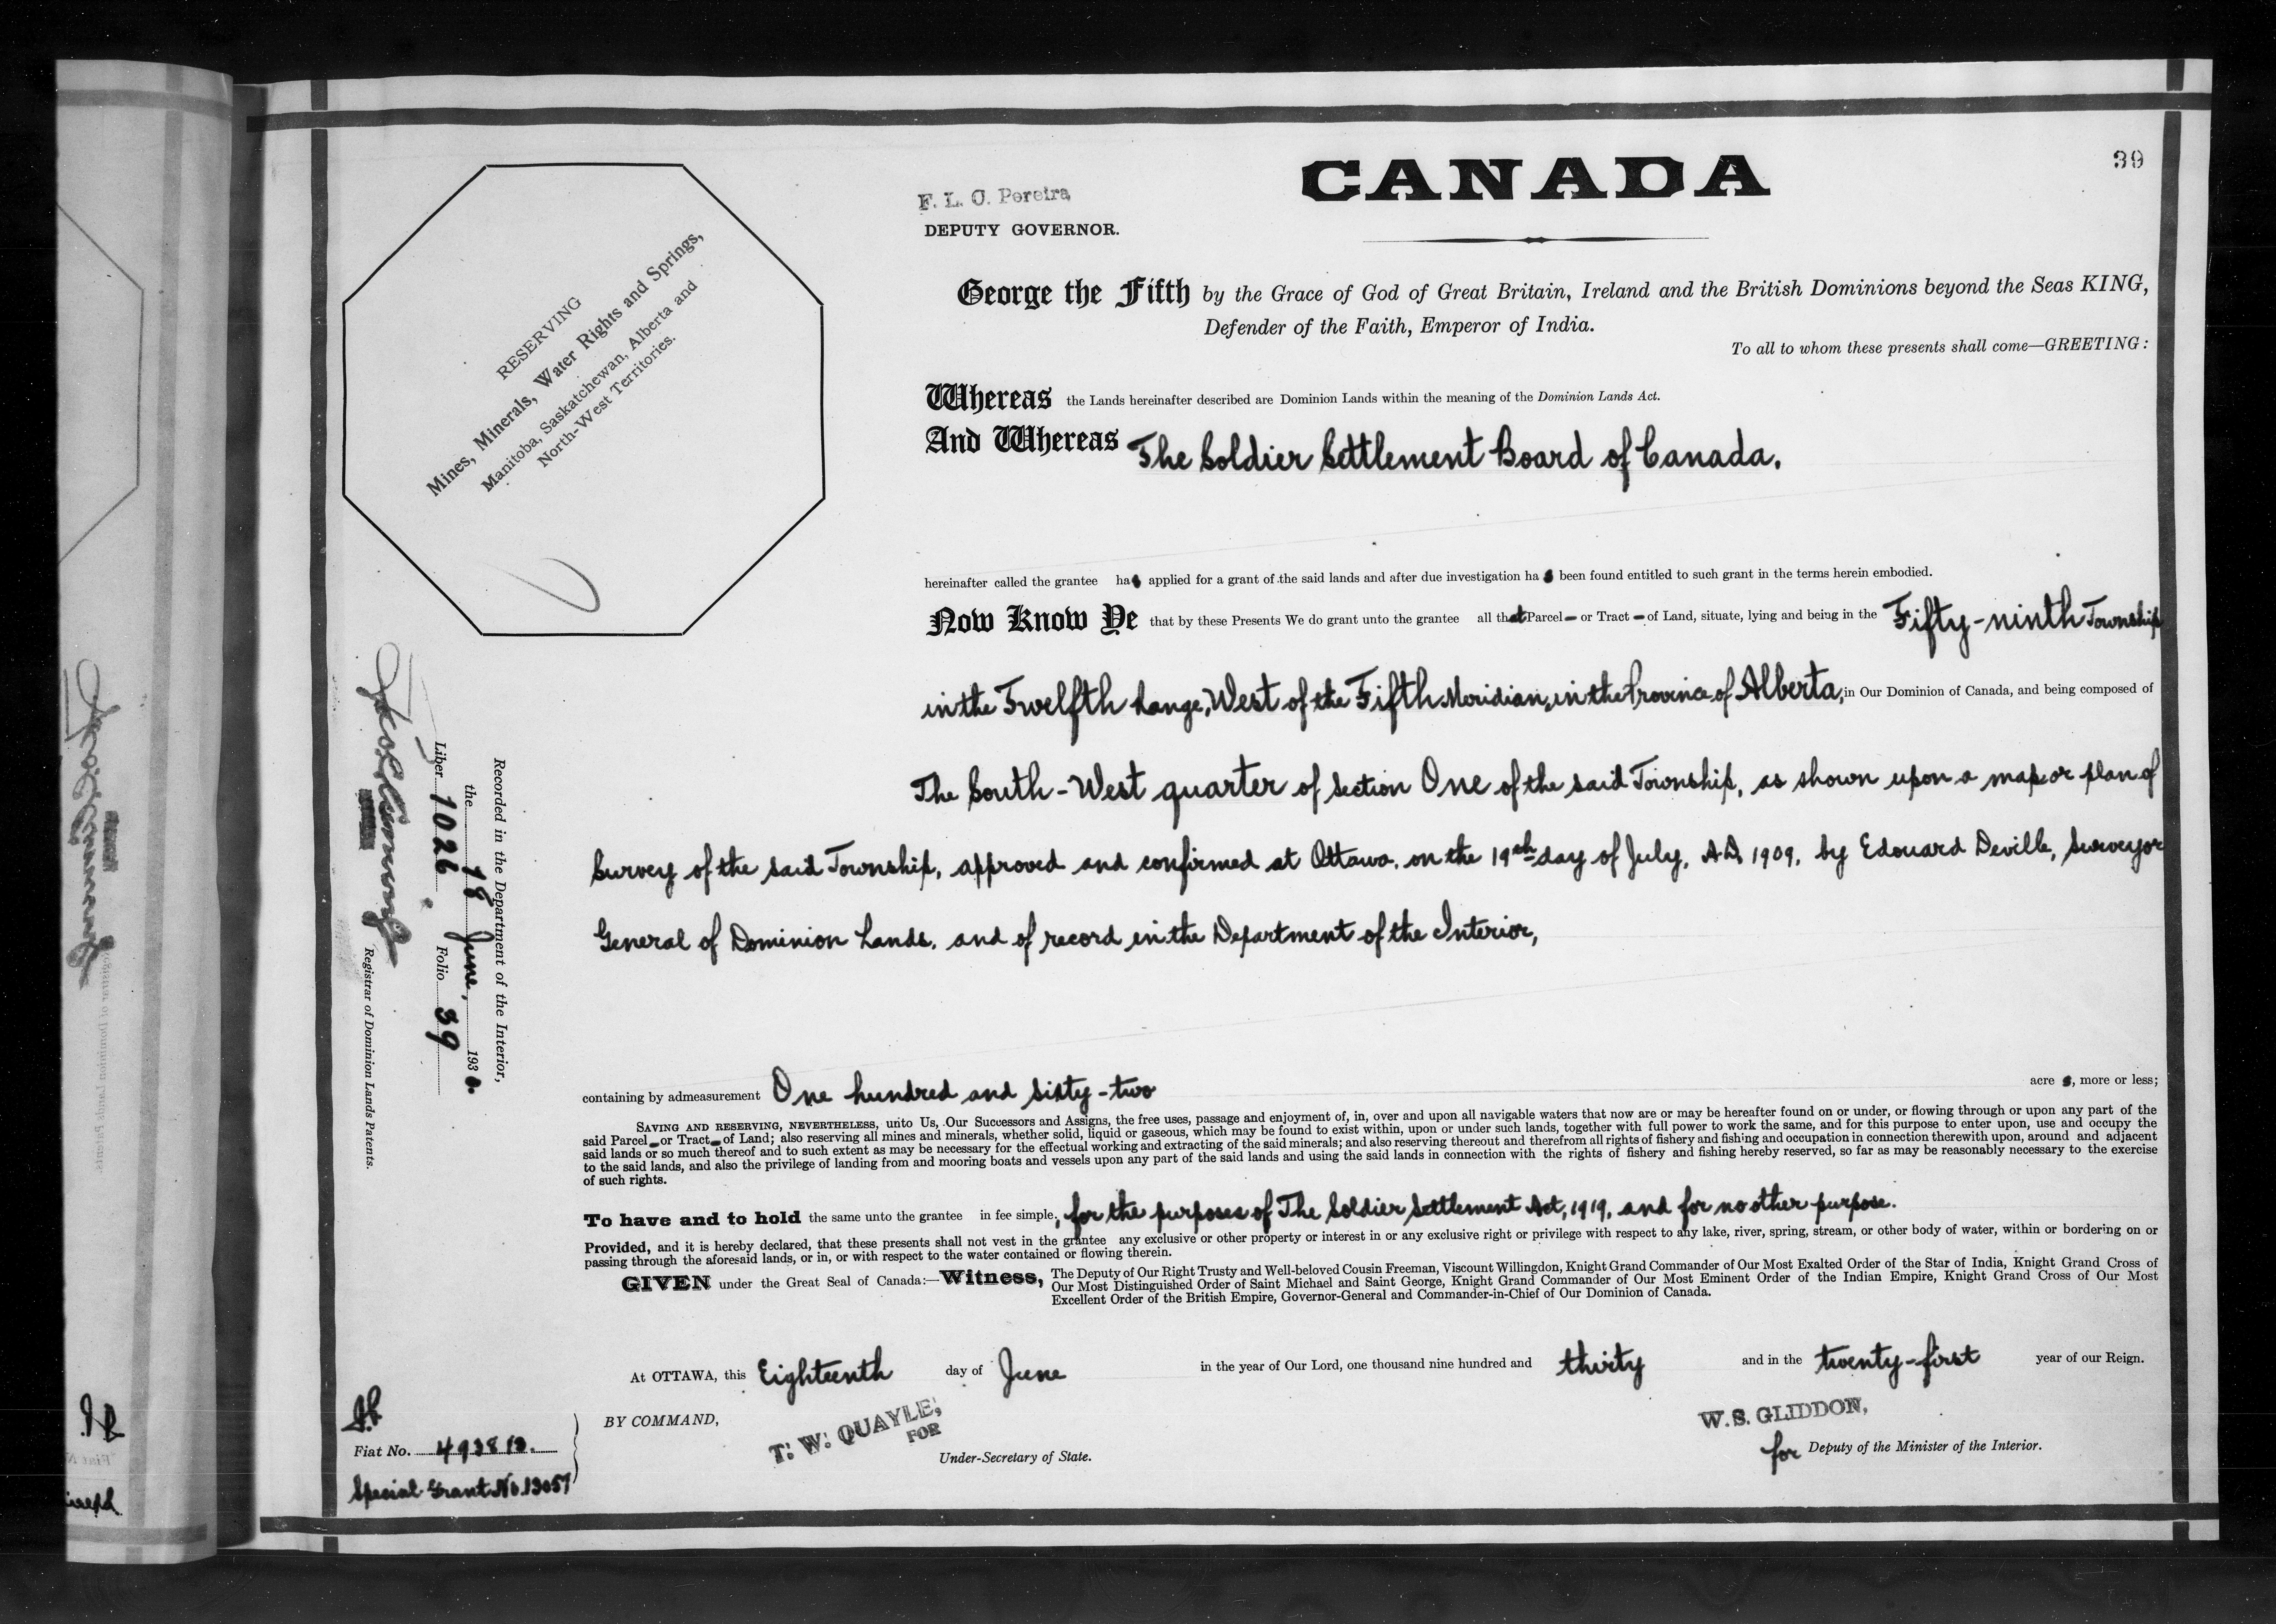 39
CANADA
F. L. C. Pereira
DEPUTY GOVERNOR.
RESERVING
Mines, Minerals, Water Rights and Springs,
Manitoba, Saskatchewan, Alberta and
North-West Territories.
George the Fifth by the Grace of God of Great Britain, Ireland and the British Dominions beyond the Seas KING,
Defender of the Faith, Emperor of India.
To all to whom these presents shall come—GREETING:
Whereas the Lands hereinafter described are Dominion Lands within the meaning of the Dominion Lands Act.
And Whereas The Soldier Settlement Board of Canada,
hereinafter called the grantee has applied for a grant of the said lands and after due investigation has been found entitled to such grant in the terms herein embodied.
Now Know Ye that by these Presents We do grant unto the grantee all that Parcel or Tract of Land, situate, lying and being in the Fifty-ninth Township
in the Twelfth Range, West of the Fifth Meridian, in the Province of Alberta, in Our Dominion of Canada, and being composed of
The South-West quarter of Section One of the said Township, as shown upon a map or plan of
Survey of the said Township, approved and confirmed at Ottawa, on the 19th day of July, A.D. 1909, by Edouard Deville, Surveyor
General of Dominion Lands, and of record in the Department of the Interior,
containing by admeasurement One hundred and sixty-two acres, more or less;
SAVING AND RESERVING, NEVERTHELESS, unto Us, Our Successors and Assigns, the free uses, passage and enjoyment of, in, over and upon all navigable waters that now are or may be hereafter found on or under, or flowing through or upon any part of the
said Parcel or Tract of Land; also reserving all mines and minerals, whether solid, liquid or gaseous, which may be found to exist within, upon or under such lands, together with full power to work the same, and for this purpose to enter upon, use and occupy the
said lands or so much thereof and to such extent as may be necessary for the effectual working and extracting of the said minerals; and also reserving thereout and therefrom all rights of fishery and fishing and occupation in connection therewith upon, around and adjacent
to the said lands, and also the privilege of landing from and mooring boats and vessels upon any part of the said lands and using the said lands in connection with the rights of fishery and fishing hereby reserved, so far as may be reasonably necessary to the exercise
of such rights.
To have and to hold the same unto the grantee in fee simple, for the purposes of The Soldier Settlement Act, 1919, and for no other purpose.
Provided, and it is hereby declared, that these presents shall not vest in the grantee any exclusive or other property or interest in or any exclusive right or privilege with respect to any lake, river, spring, stream, or other body of water, within or bordering on or
passing through the aforesaid lands, or in, or with respect to the water contained or flowing therein.
GIVEN under the Great Seal of Canada:—Witness, The Deputy of Our Right Trusty and Well-beloved Cousin Freeman, Viscount Willingdon, Knight Grand Commander of Our Most Exalted Order of the Star of India, Knight Grand Cross of
Our Most Distinguished Order of Saint Michael and Saint George, Knight Grand Commander of Our Most Eminent Order of the Indian Empire, Knight Grand Cross of Our Most
Excellent Order of the British Empire, Governor-General and Commander-in-Chief of Our Dominion of Canada.
At OTTAWA, this Eighteenth day of June in the year of Our Lord, one thousand nine hundred and thirty and in the twenty-first year of our Reign.
BY COMMAND,
T. W. QUAYLE,
FOR
Under-Secretary of State.
W. S. GLIDDON,
for Deputy of the Minister of the Interior.
Fiat No. 493812.
Special Grant No. 13057
Recorded in the Department of the Interior,
the 18 June, 1930.
Liber 1026 Folio 39
Registrar of Dominion Lands Patents.